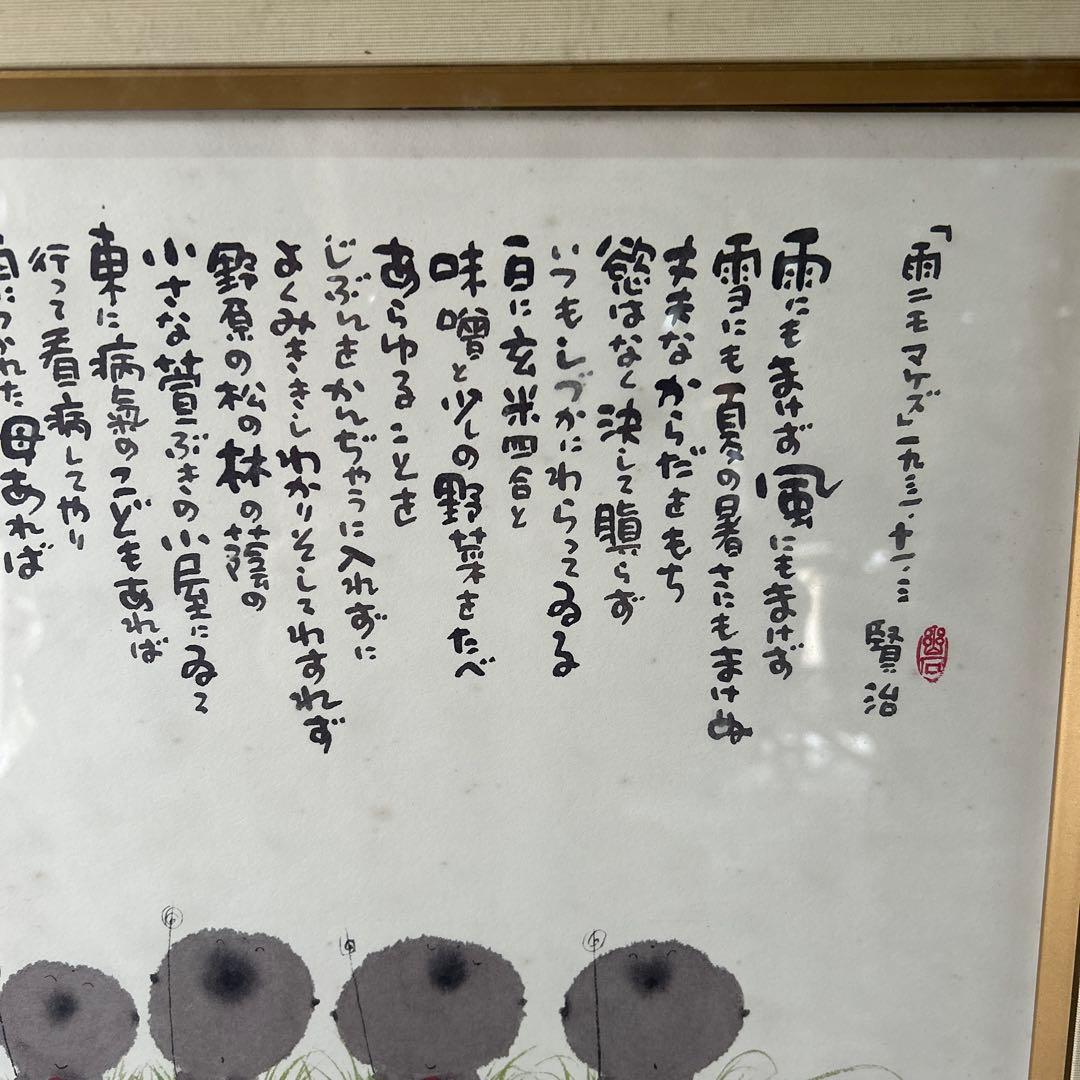 「雨ニモマケズ」一九三一・十一・三
賢治
雨にもまけず風にもまけず
雪にも夏の暑さにもまけぬ
丈夫なからだをもち
慾はなく決して瞋らず
いつもしづかにわらってゐる
一日に玄米四合と
味噌と少しの野菜をたべ
あらゆることを
じぶんをかんぢやうに入れずに
よくみききしわかりそしてわすれず
野原の松の林の蔭の
小さな萱ぶきの小屋にゐて
東に病氣のこどもあれば
行って看病してやり
つかれた母あれば